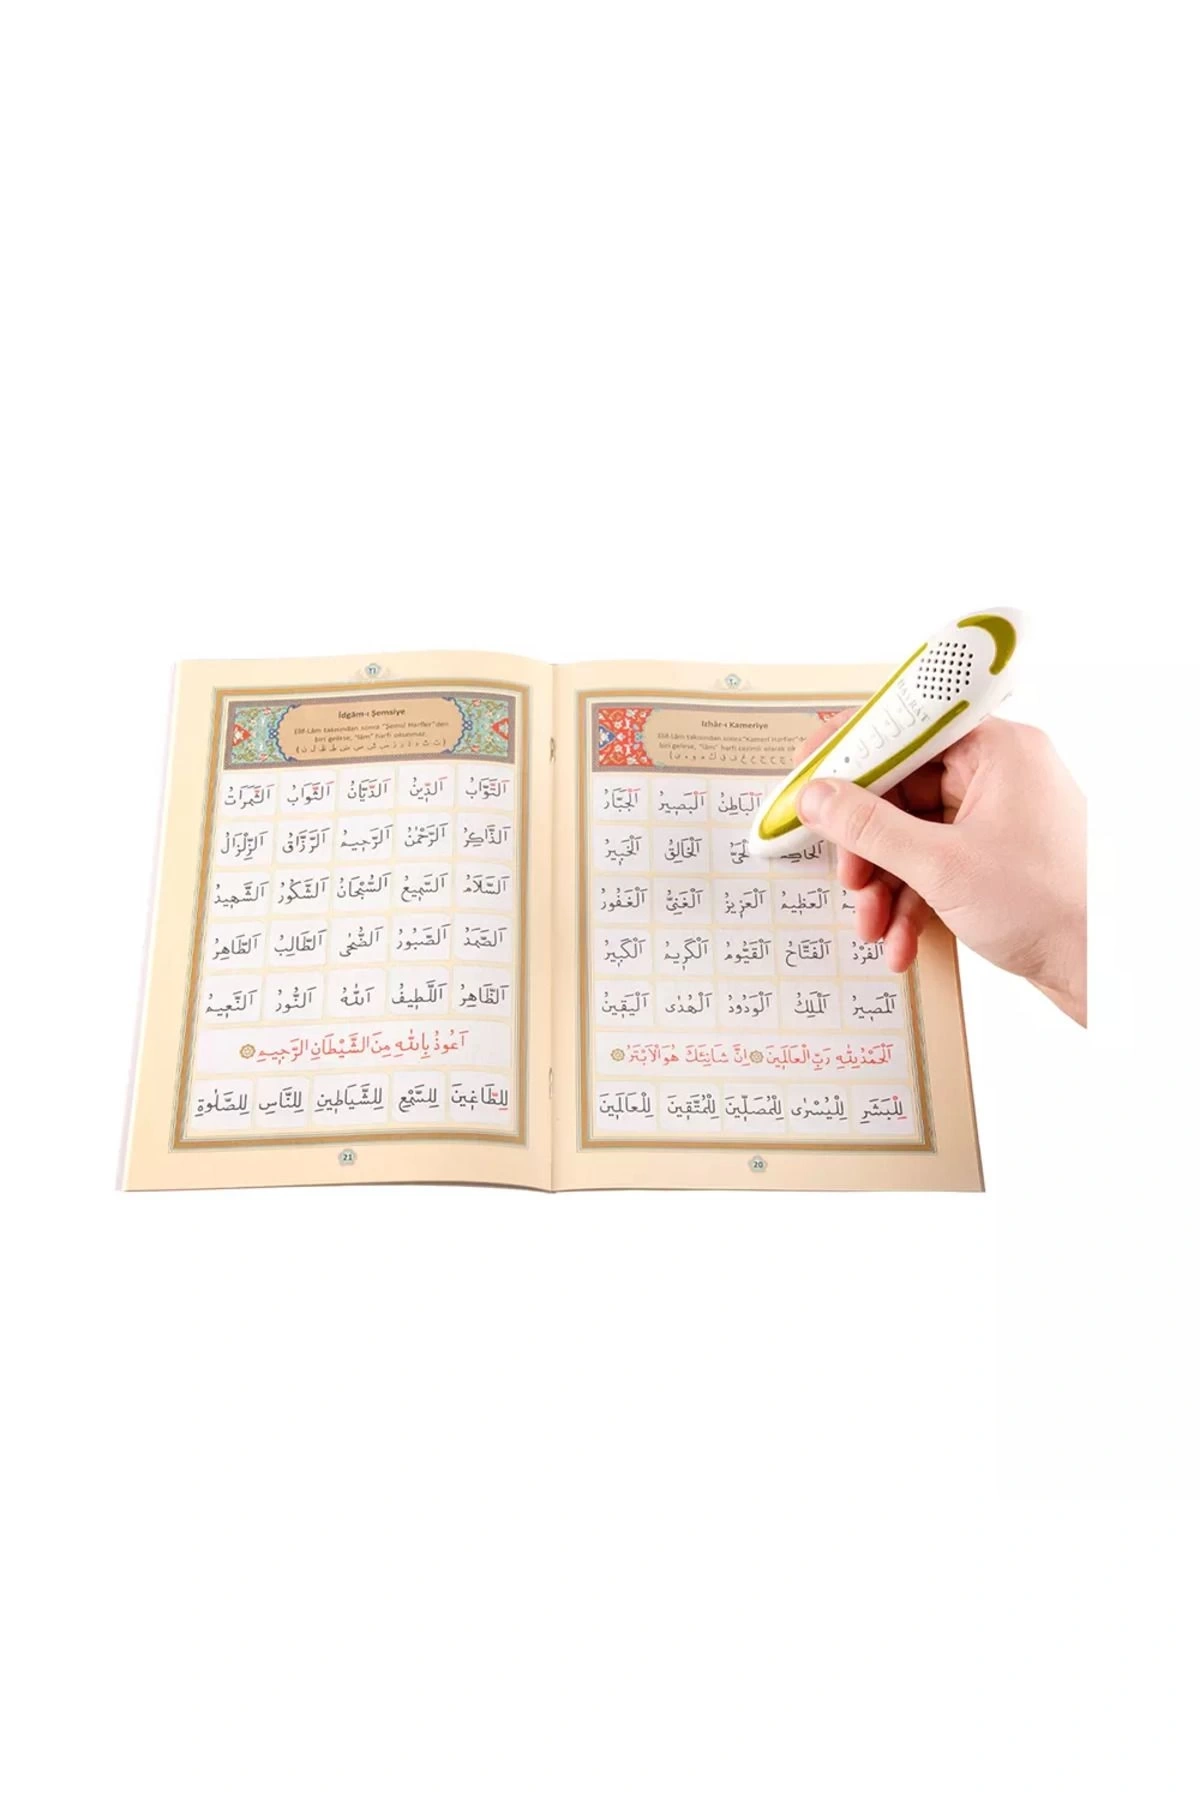 ٢٠
Izhâr-ı Kameriye
Elif-Lâm takısından sonra "Kamerî Harfler"de
biri gelirse, "lâm" harfi cezimli olarak
اَلْبَاطِنُ اَلْبَصِيرُ اَلْجَبَّارُ
اَلْخَالِقُ اَلْخَبِيرُ
اَلْعَظِيمُ اَلْعَزِيزُ اَلْغَنِيُّ اَلْغَفُورُ
اَلْفَرْدُ اَلْفَتَّاحُ اَلْقَيُّومُ اَلْكَرِيمُ اَلْكَبِيرُ
اَلْمَصِيرُ اَلْمَلِكُ اَلْوَدُودُ اَلْهُدٰى اَلْيَقِينُ
اَلْحَمْدُ لِلّٰهِ رَبِّ الْعَالَمِينَ ۞ اِنَّ شَانِئَكَ هُوَ الْاَبْتَرُ ۞
لِلْبَشَرِ لِلْيُسْرٰى لِلْمُصَلِّينَ لِلْمُتَّقِينَ لِلْعَالَمِينَ
20
٢١
İdgâm-ı Şemsiye
Elif-Lâm takısından sonra "Şemsî Harfler"den
biri gelirse, "lâm" harfi okunmaz.
( ت ث د ذ ر ز س ش ص ض ط ظ ل ن )
اَلتَّوَّابُ اَلدِّينُ اَلدَّيَّانُ اَلثَّوَابُ اَلثَّمَرَاتُ
اَلذَّاكِرُ اَلرَّحْمٰنُ اَلرَّحِيمُ اَلرَّزَّاقُ اَلزِّلْزَالُ
اَلسَّلَامُ اَلسَّمِيعُ اَلسُّبْحَانُ اَلشَّكُورُ اَلشَّهِيدُ
اَلصَّمَدُ اَلصَّبُورُ اَلضُّحٰى اَلطَّالِبُ اَلطَّاهِرُ
اَلظَّاهِرُ اَللَّطِيفُ اَللّٰهُ اَلنُّورُ اَلنَّعِيمُ
اَعُوذُ بِاللّٰهِ مِنَ الشَّيْطَانِ الرَّجِيمِ ۞
لِلطَّاغِينَ لِلسَّمْعِ لِلشَّيَاطِينِ لِلنَّاسِ لِلصَّلٰوةِ
21
HAYRAT